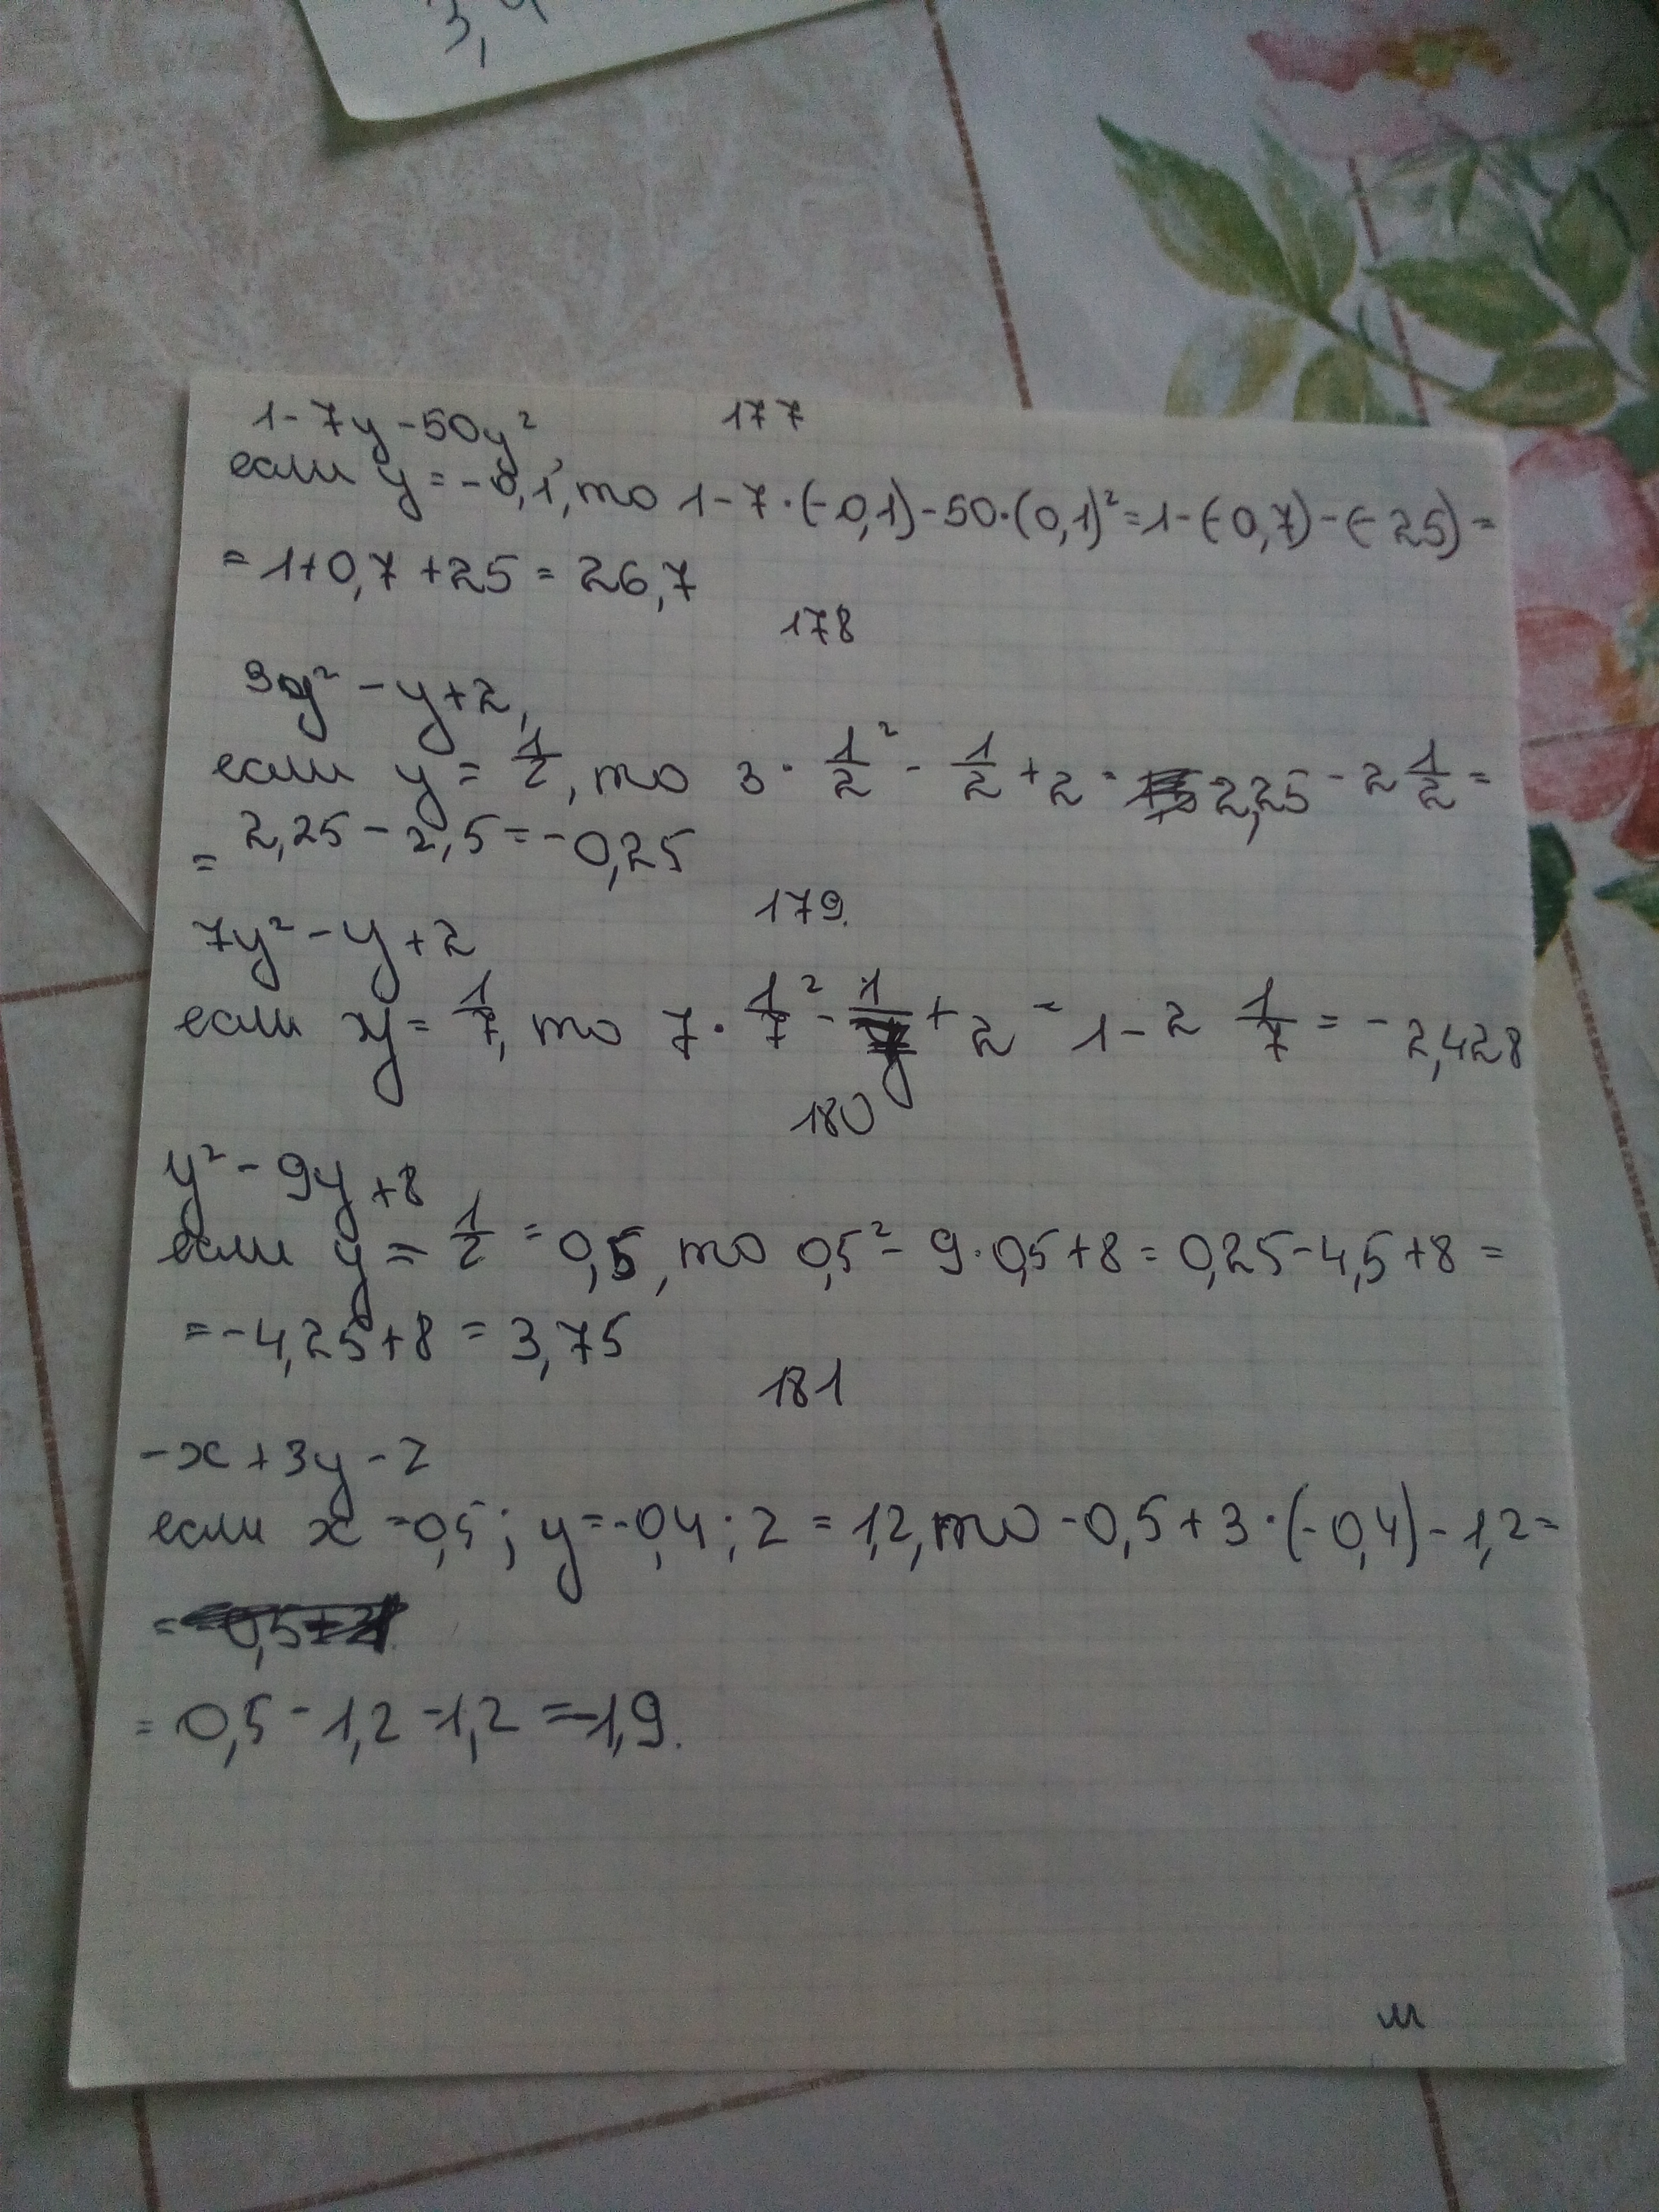 3,4
177
1-7y-50y²,
если y=-0,1, то 1-7·(-0,1)-50·(0,1)²=1-(-0,7)-(-25)=
=1+0,7+25=26,7
178
3y²-y+2,
если y=1/2, то 3·1/2²-1/2+2=2,25-2 1/2=
=2,25-2,5=-0,25
179.
7y²-y+2
если y=1/7, то 7·1/7²-1/y+2=1-2 1/7=-2,428
180
y²-9y+8
если y=1/2=0,5, то 0,5²-9·0,5+8=0,25-4,5+8=
=-4,25+8=3,75
181
-x+3y-z
если x=0,5; y=-0,4; z=1,2, то -0,5+3·(-0,4)-1,2=
=
=0,5-1,2-1,2=-1,9.
м